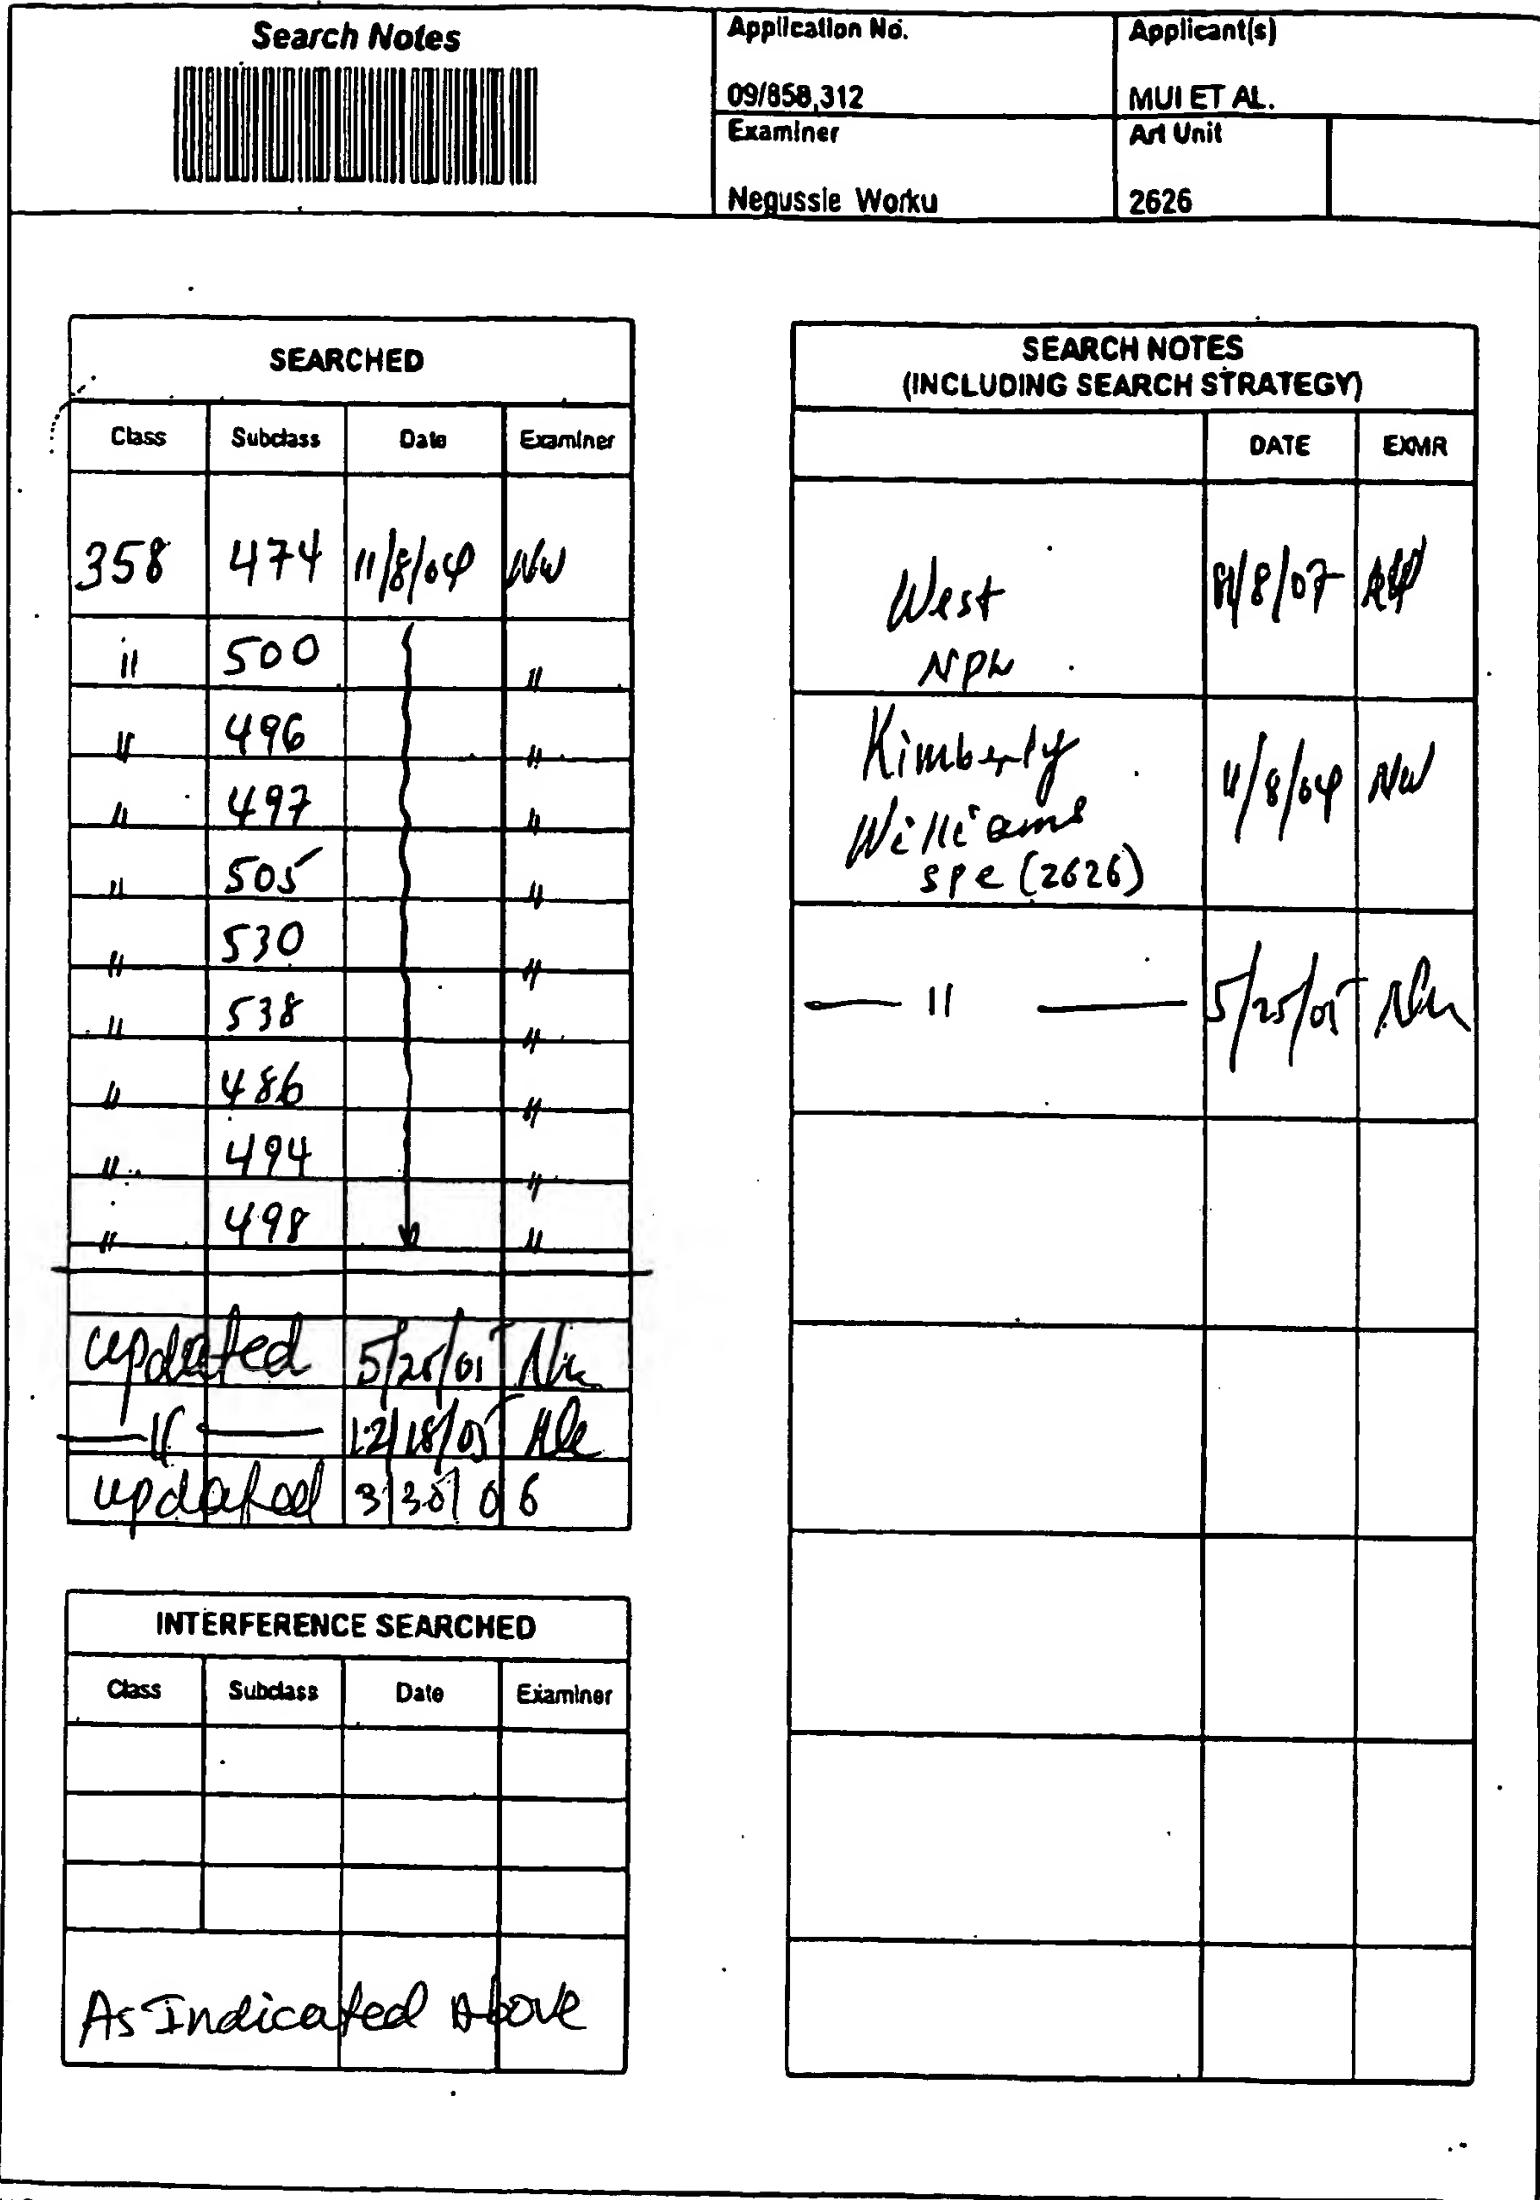 Search Notes
Application No.
09/858,312
Applicant(s)
MUI ET AL.
Examiner
Negussie Worku
Art Unit
2626
SEARCHED
Class Subclass Date Examiner
358 474 11/8/04 NW
" 500 "
" 496 "
" 497 "
" 505 "
" 530 "
" 538 "
" 486 "
" 494 "
" 498 "
updated 5/25/05 Nw
— " — 12/18/05
updated 3/30/06
INTERFERENCE SEARCHED
Class Subclass Date Examiner
As Indicated Above
SEARCH NOTES
(INCLUDING SEARCH STRATEGY)
DATE EXMR
West
NPL
Kimberly
Williams
spe (2626)
11/8/04 NW
— " — 5/25/05 Nw